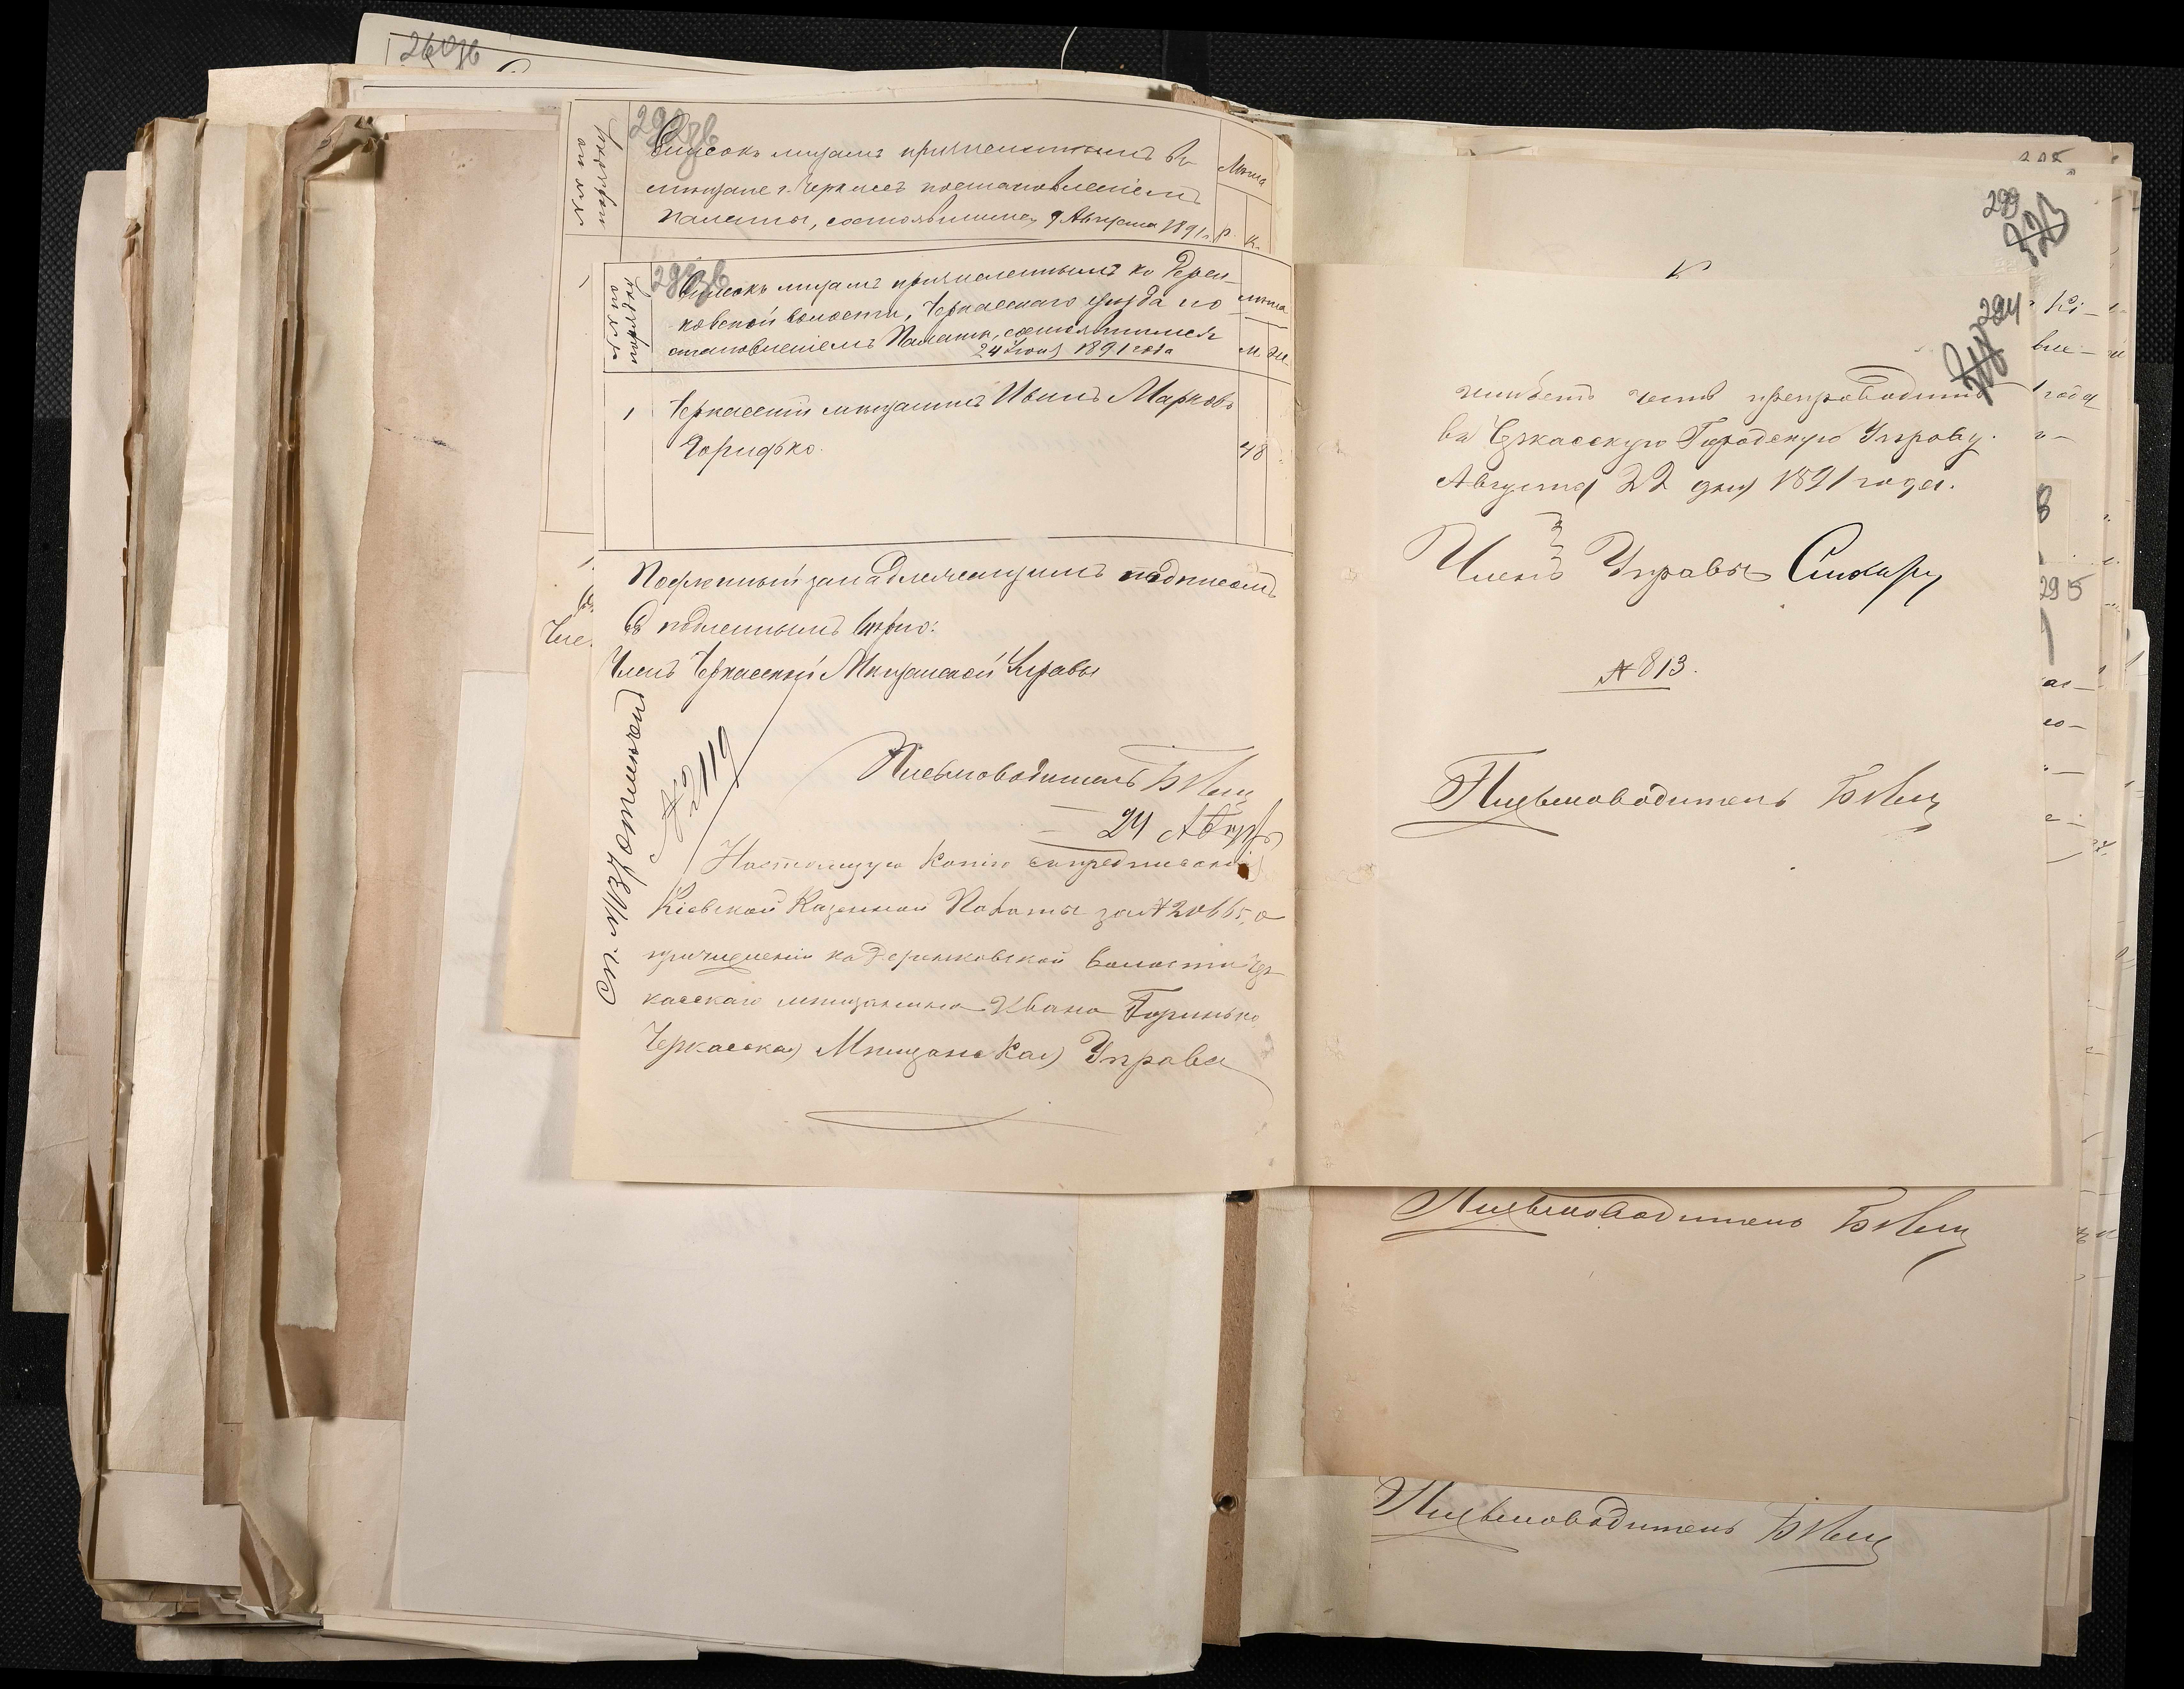 260 зв
292 зв
Списокъ лицамъ причисленнымъ въ
мѣщане г. Черкассъ постановленіемъ
Палаты, состоявшимся 9 Августа 1891 г.
Р. К.
1
293 зв
№№ по порядку
Списокъ лицамъ причисленнымъ къ Дерен-
ковской волости, Черкасскаго уѣзда по
становленіемъ Палаты, состоявшимся
24 Іюня 1891 года
М. Ж.
1
Черкасскій мѣщанинъ Иванъ Марковъ
Горидько.
48
Подлинный за надлежащимъ подписомъ
Съ подлиннымъ вѣрно:
Членъ Черкасской Мѣщанской Управы
Письмоводитель
№ 2119
24 Августа
Настоящую копію съ предписанія
Кіевской Казенной Палаты за № 20665, о
причисленіи къ Деренковской волости Чер-
касскаго мѣщанина Ивана Горинько
Черкасская Мѣщанская Управа
299
323
294
имѣетъ честь препроводить
въ Черкасскую Городскую Управу.
Августа 22 дня 1891 года.
Членъ Управы
№ 813.
Письмоводитель
295
Письмоводитель
Письмоводитель